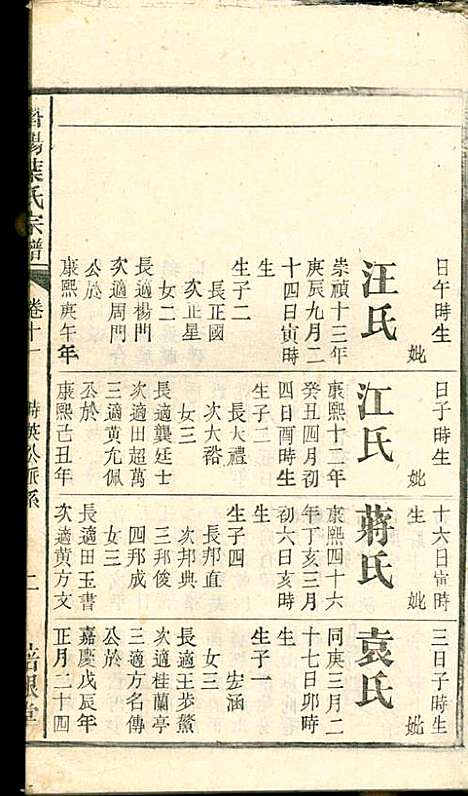 日午時生
妣
汪氏
崇禎十三年
庚辰九月二
十四日寅時
生
生子二
長正國
次止星
女二
長適楊門
次適周門
公於
康熙庚午年
日子時生
妣
江氏
康熙十二年
癸丑四月初
四日酉時生
生子二
長大禮
次大裕
女三
長適龔廷士
次適田超萬
三適黃允佩
公於
康熙己丑年
十六日寅時
生
妣
蔣氏
康熙四十六
年丁亥三月
初六日亥時
生
生子四
長邦直
次邦典
三邦俊
四邦成
女三
長適田玉書
次適黃方文
三日子時生
妣
袁氏
同庚三月二
十七日卯時
生
生子一
宏涵
女三
長適王步鰲
次適桂蘭亭
三適方名傳
公於
嘉慶戊辰年
正月二十四
陽葉氏宗譜
卷十一
時英公派系
二